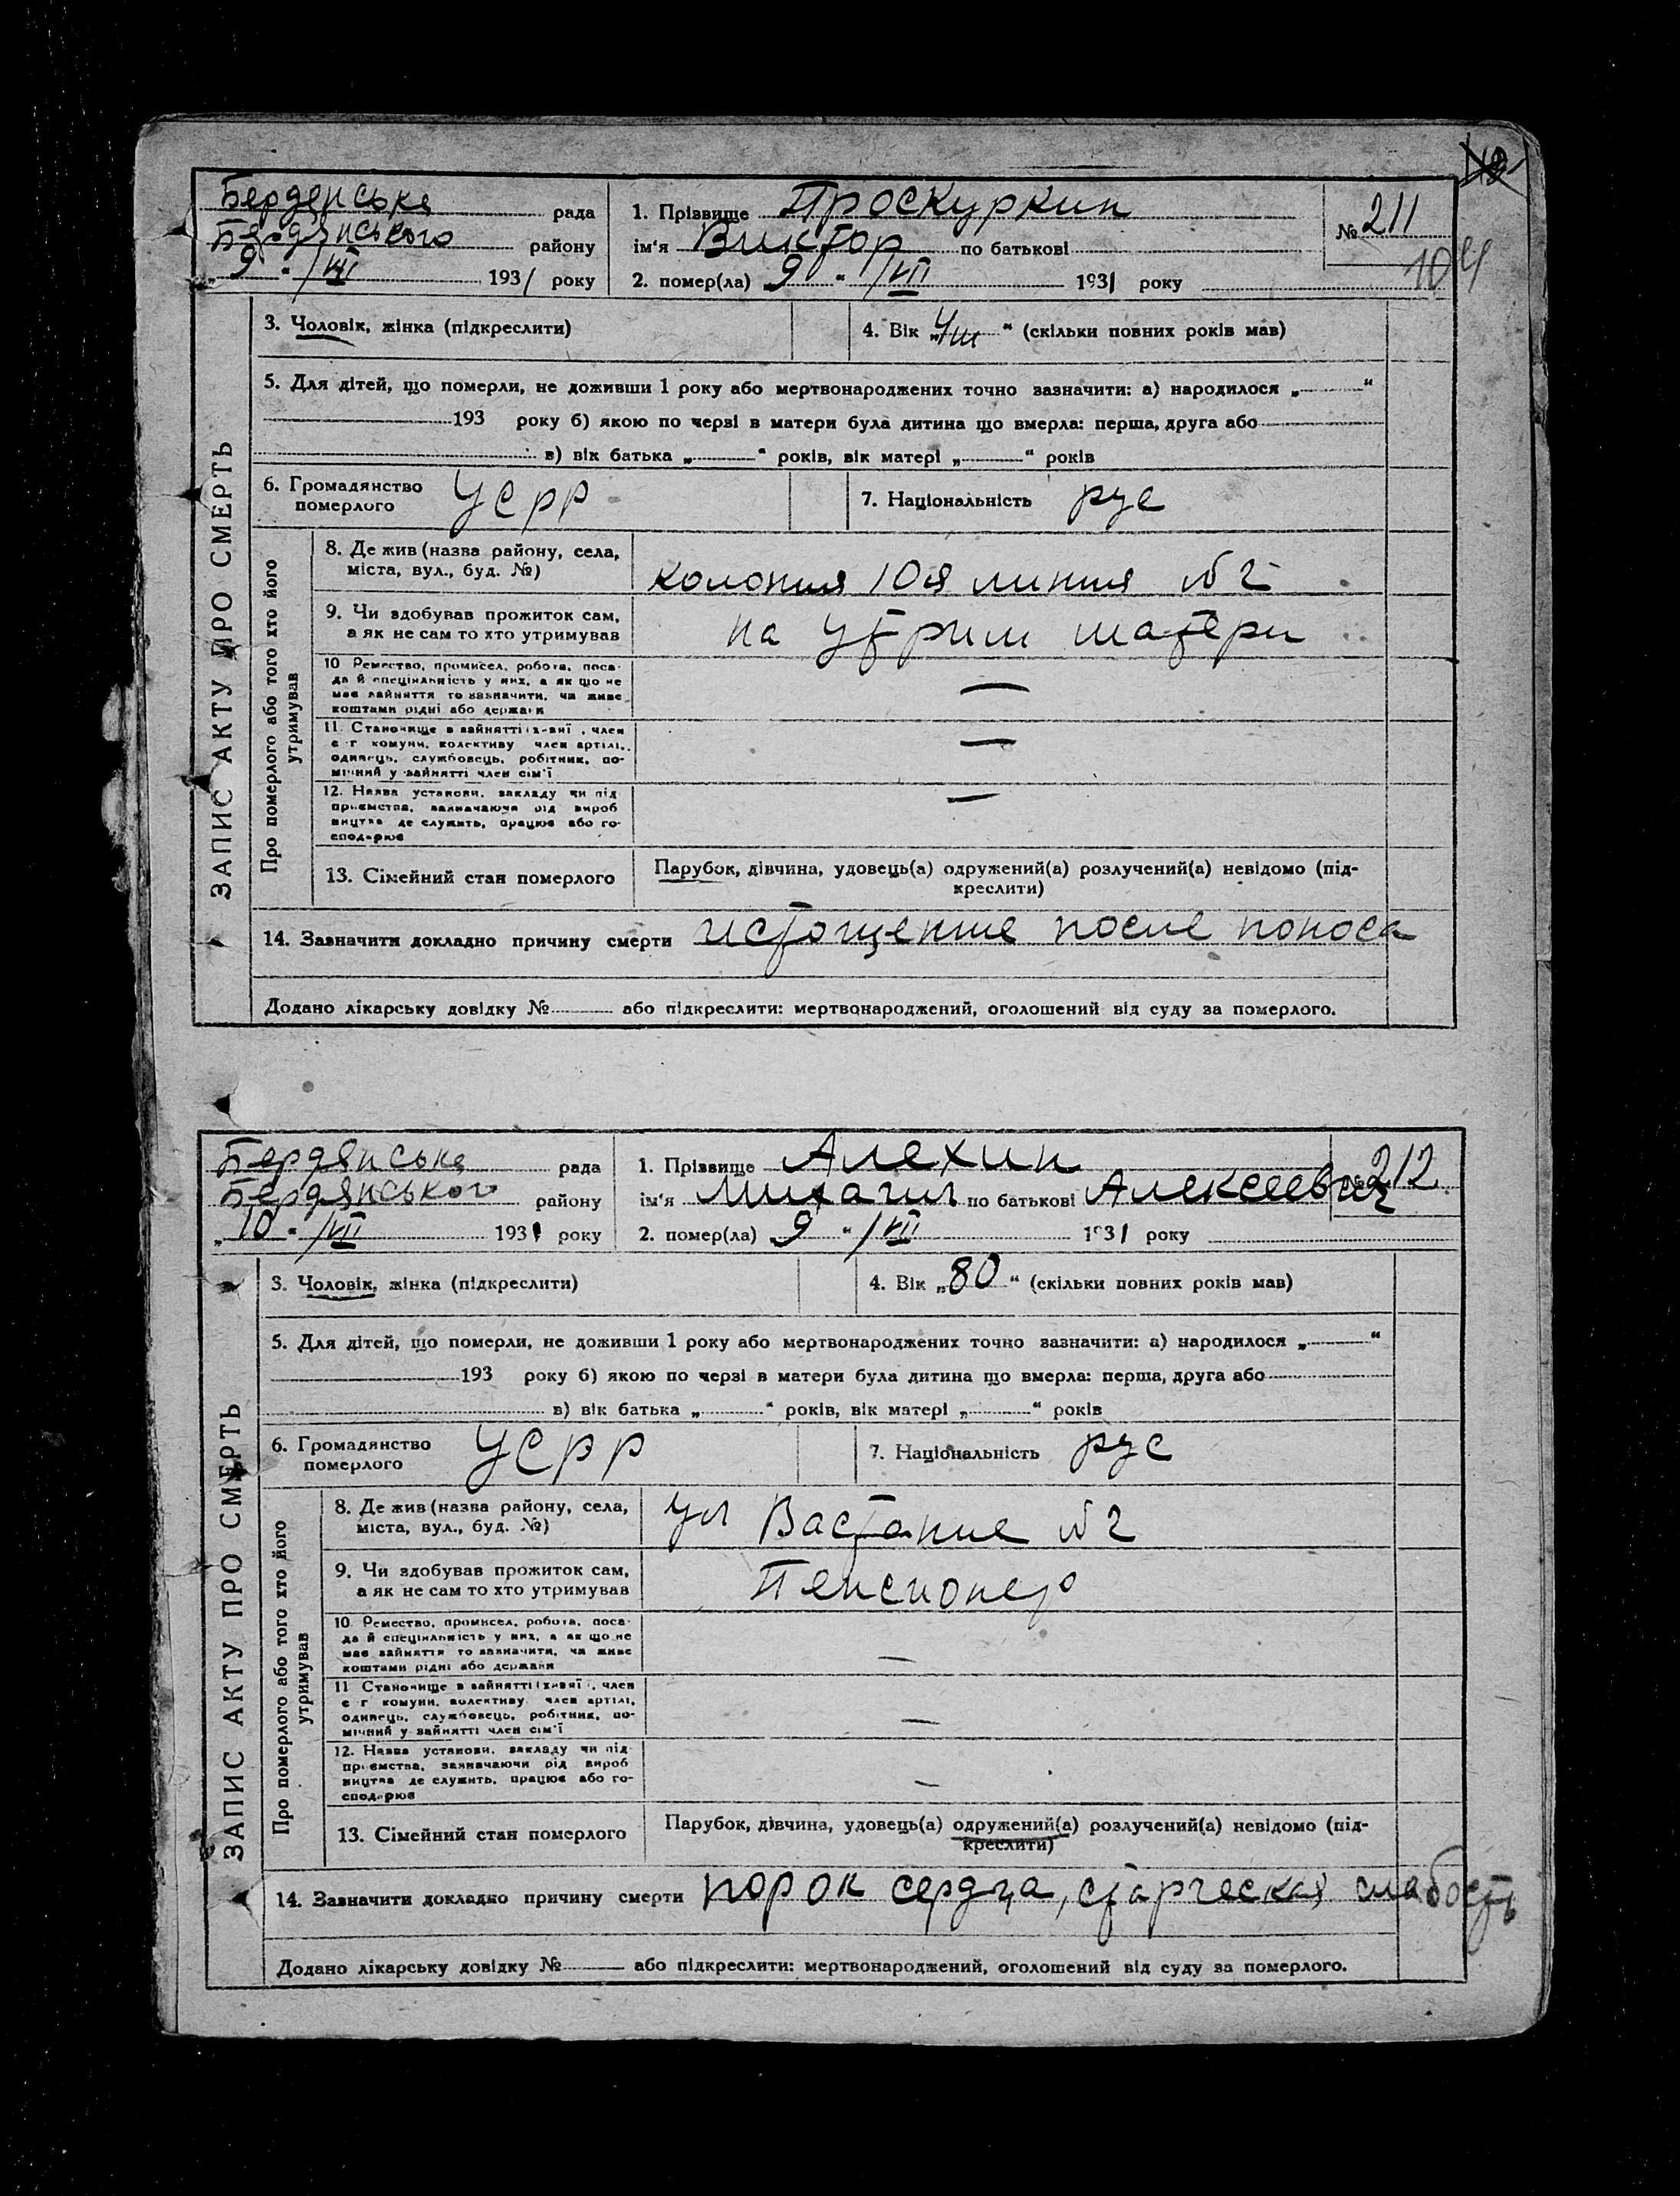 Бердянська рада
Бердянського району
„9“ /VII 1931 року
1. Прізвище Проскуркин
ім'я Виктор по батькові
2. помер(ла) 9 “ /VII 1931 року
№ 211
104
ЗАПИС АКТУ ПРО СМЕРТЬ
3. Чоловік, жінка (підкреслити)
4. Вік „4м“ (скільки повних років мав)
5. Для дітей, що померли, не доживши 1 року або мертвонароджених точно зазначити: а) народилося „ “
193 року б) якою по черзі в матери була дитина що вмерла: перша, друга або
в) вік батька „ “ років, вік матері „ “ років
6. Громадянство
померлого
УСРР
7. Національність рус
Про померлого або того хто його
утримував
8. Де жив (назва району, села,
міста, вул., буд. №)
колония 10я линия №2
9. Чи здобував прожиток сам,
а як не сам то хто утримував
на утрим матери
10 Ремество, промисел, робота, поса-
да й спеціяльність у них, а як що не
має зайняття то зазначити, чи живе
коштами рідні або держави
—
11. Становище в зайнятті , член
с-г комуни, колективу член артілі,
одинець, службовець, робітник, по-
мічний у зайнятті член сім'ї
—
12. Назва установи, закладу чи під-
приємства, зазначаючи рід вироб
ництва де служить, працює або го-
сподарює
—
13. Сімейний стан померлого
Парубок, дівчина, удовець(а) одружений(а) розлучений(а) невідомо (під-
креслити)
14. Зазначити докладно причину смерти истощение после поноса
Додано лікарську довідку № або підкреслити: мертвонароджений, оголошений від суду за померлого.
Бердянська рада
Бердянського району
„10“ /VII 1931 року
1. Прізвище Алехин
ім'я Михаил по батькові Алексеевич
2. помер(ла) 9 “ /VII 1931 року
№ 212
ЗАПИС АКТУ ПРО СМЕРТЬ
3. Чоловік, жінка (підкреслити)
4. Вік „80“ (скільки повних років мав)
5. Для дітей, що померли, не доживши 1 року або мертвонароджених точно зазначити: а) народилося „ “
193 року б) якою по черзі в матери була дитина що вмерла: перша, друга або
в) вік батька „ “ років, вік матері „ “ років
6. Громадянство
померлого
УСРР
7. Національність рус
Про померлого або того хто його
утримував
8. Де жив (назва району, села,
міста, вул., буд. №)
ул Вастание №2
9. Чи здобував прожиток сам,
а як не сам то хто утримував
Пенсионер
10 Ремество, промисел, робота, поса-
да й спеціяльність у них, а як що не
має зайняття то зазначити, чи живе
коштами рідні або держави
—
11 Становище в зайнятті , член
с-г комуни, колективу член артілі,
одинець, службовець, робітник, по-
мічний у зайнятті член сім'ї
—
12. Назва установи, закладу чи під-
приємства, зазначаючи рід вироб
ництва де служить, працює або го-
сподарює
—
13. Сімейний стан померлого
Парубок, дівчина, удовець(а) одружений(а) розлучений(а) невідомо (під-
креслити)
14. Зазначити докладно причину смерти порок сердца, старческая слабость
Додано лікарську довідку № або підкреслити: мертвонароджений, оголошений від суду за померлого.